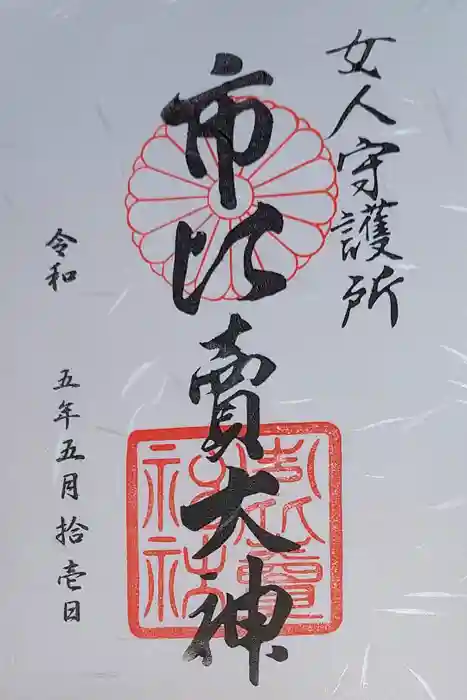 女人守護所
市比賣大神
令和
五年五月拾壱日